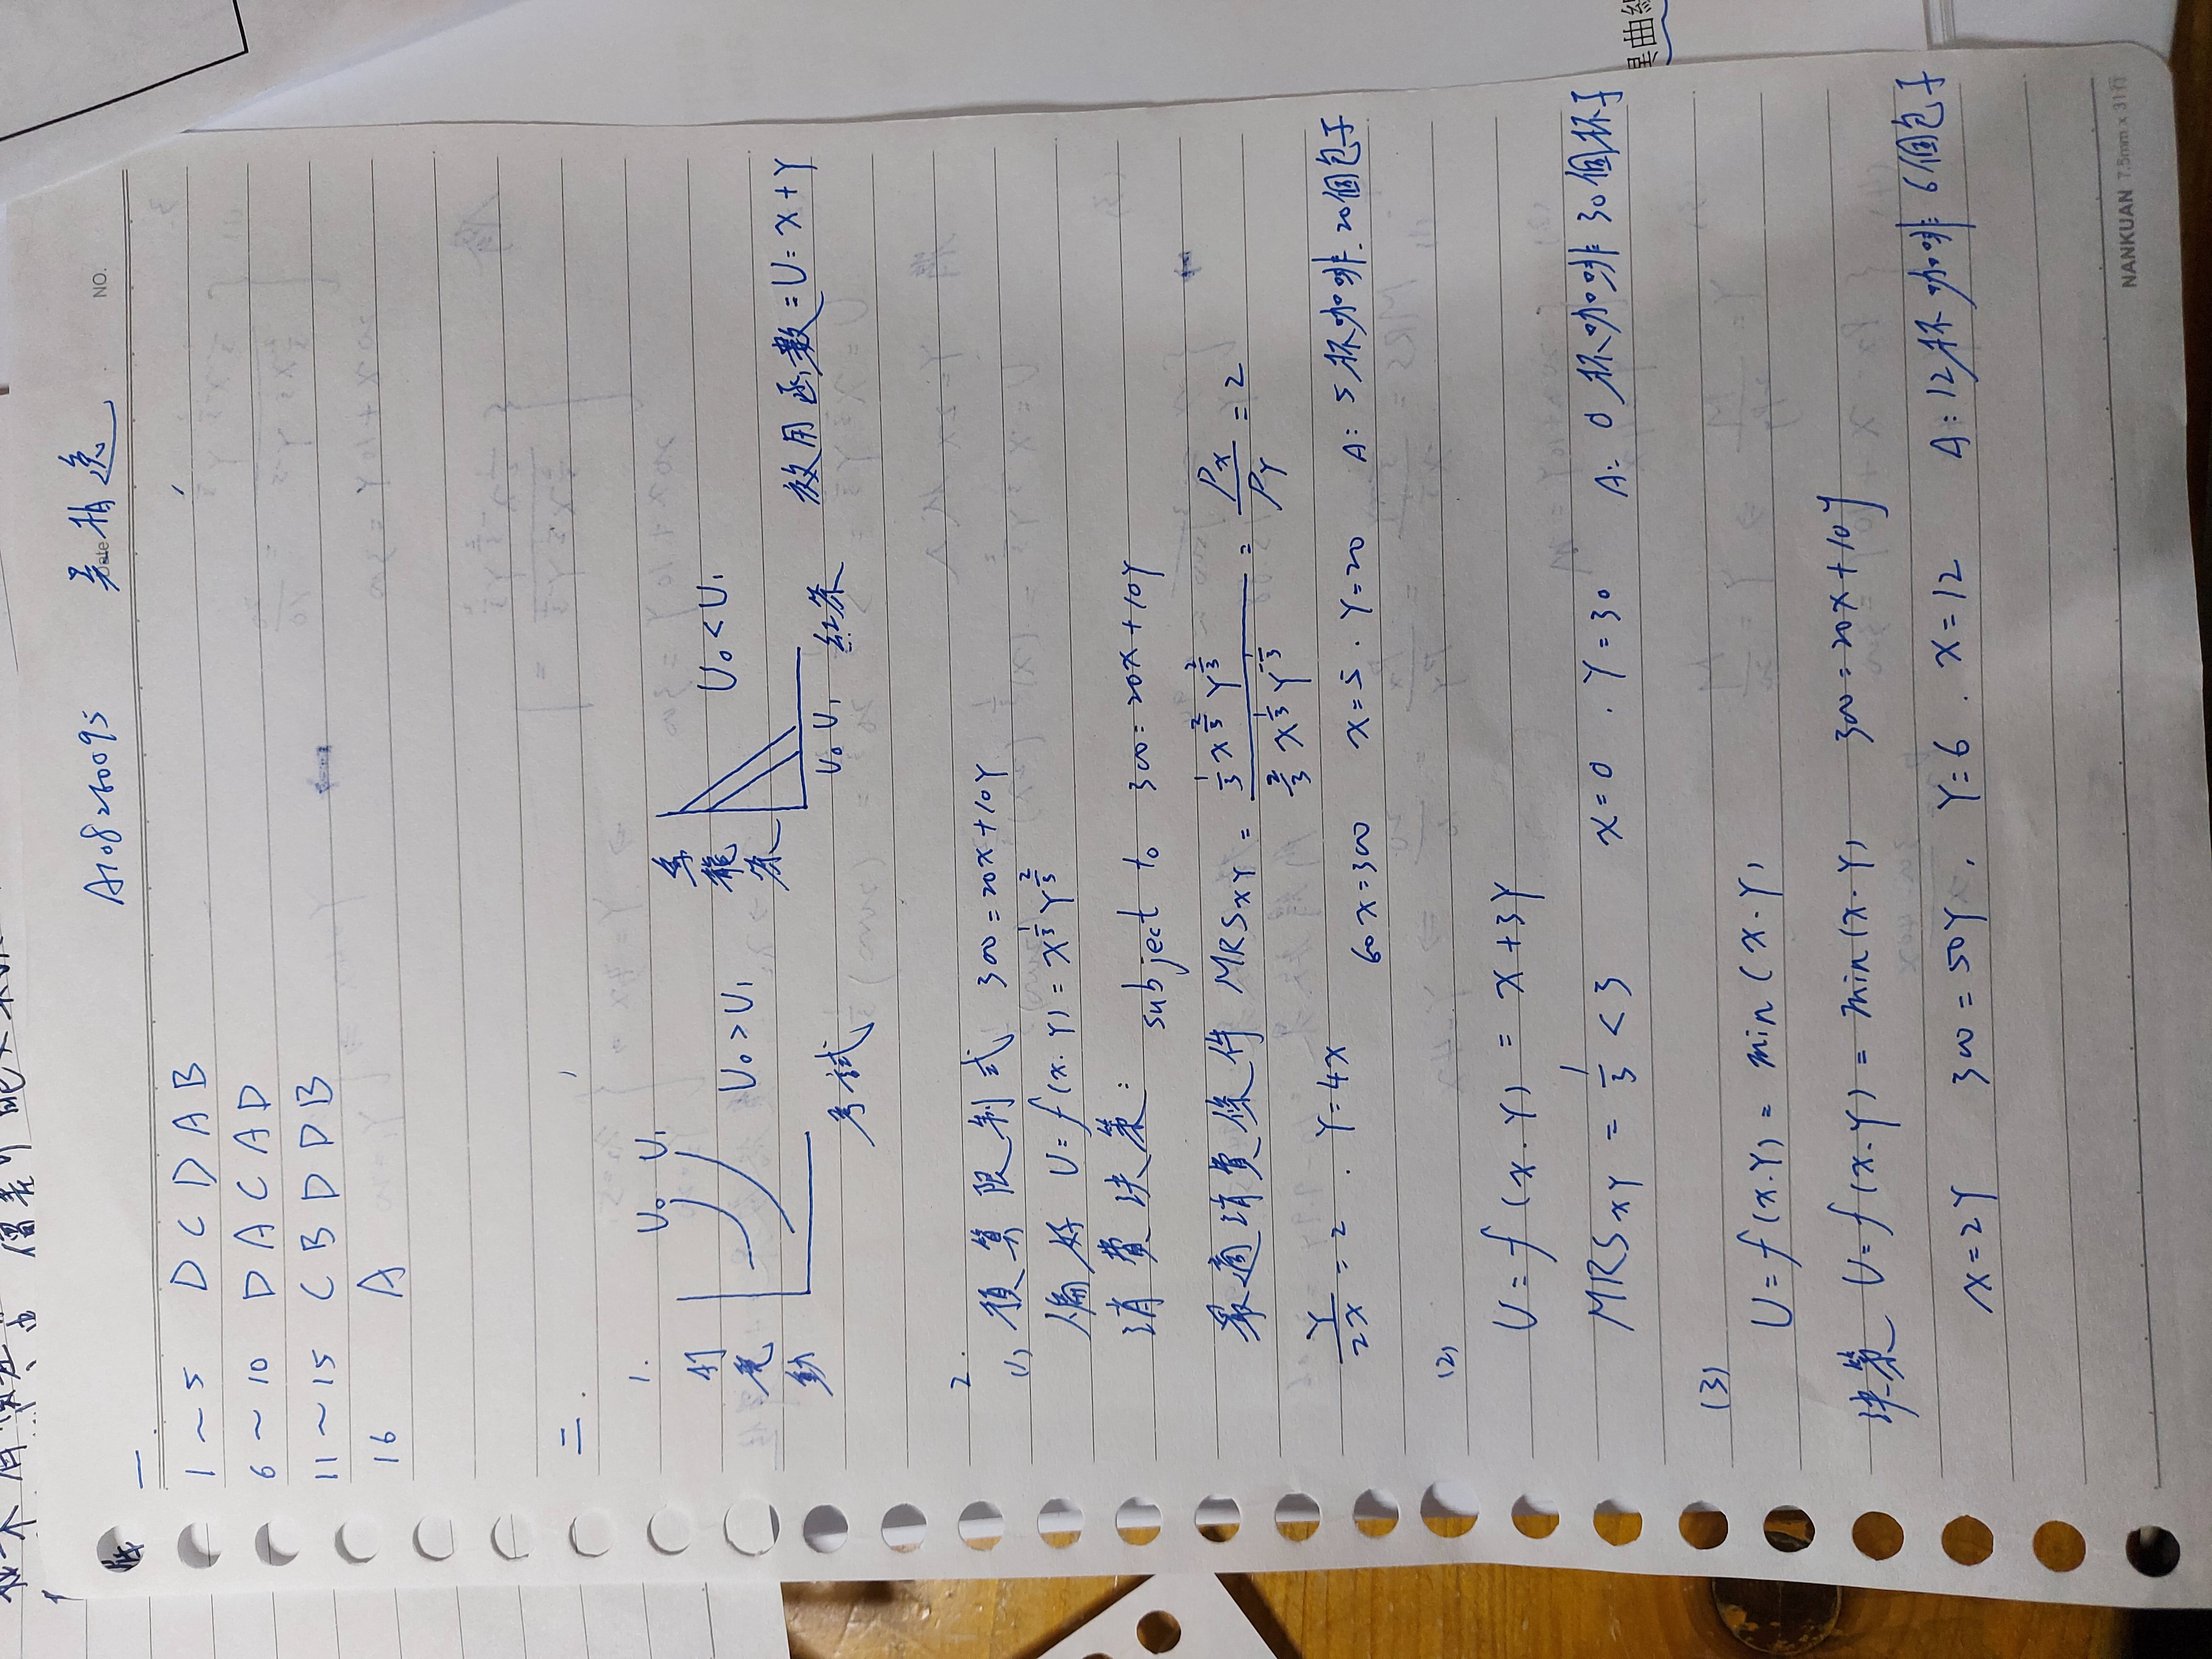 A108260095 吳柏逸 Date NO.
一
1～5 DCDAB
6～10 DACAD
11～15 CBDDB
16 A
二.
1.
U₀ U₁
打電動
U₀>U₁
考試
烏龍茶
U₀<U₁
U₀ U₁ 紅茶
效用函數=U=X+Y
2.
(1) 預算限制式 300=20X+10Y
偏好 U=f(x.Y)=X^{1/3}Y^{2/3}
消費決策: subject to 300=20X+10Y
最適消費條件 MRS_{XY} = \frac{\frac{1}{3}X^{\frac{2}{3}}Y^{\frac{2}{3}}}{\frac{2}{3}X^{\frac{1}{3}}Y^{-\frac{1}{3}}} = \frac{P_X}{P_Y} = 2
\frac{Y}{2X}=2 . Y=4X 60X=300 X=5 . Y=20 A: 5杯咖啡.20個包子
(2)
U=f(x.Y) = X+3Y
MRS_{XY} = \frac{1}{3} < 3 X=0 . Y=30 A: 0杯咖啡30個杯子
(3)
U=f(x.Y) = min(X.Y)
決策 U=f(x.Y) = min(X.Y) 300=20X+10y
X=2Y 300=50Y, Y=6 . X=12 A:12杯咖啡6個包子
異曲線
NANKUAN 7.5mm x 31行